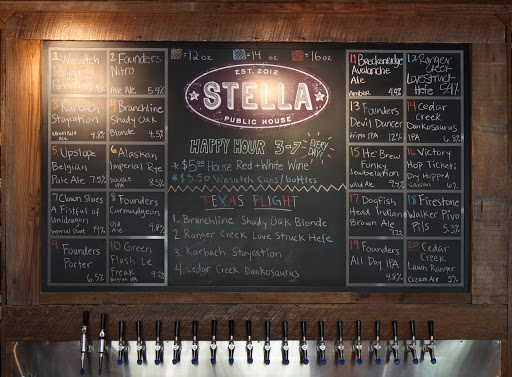 = 12 oz = 14 oz = 16 oz
EST. 2012
STELLA
PUBLIC HOUSE
HAPPY HOUR 3-7 EVERY DAY!
$5.00 House Red + White Wine
$5.50 Wasatch Cans/bottles
TEXAS FLIGHT
1. Branchline Shady Oak Blonde
2. Ranger Creek Love Struck Hefe
3. Karbach Staycation
4. Cedar Creek Dankosaurus
1 Wasatch
Polygamy
Porter
2 Founders
Nitro
Pale Ale 5.4%
3 Karbach
Staycation
Wheat Pale Ale 4.8%
4 Branchline
Shady Oak
Blonde 4.5%
5 Upslope
Belgian
Pale Ale 7.5%
6 Alaskan
Imperial Rye
Double IPA 8.5%
7 Clown Shoes
A Fistful of
Unidragon
Imperial Stout
8 Founders
Curmudgeon
Old Ale 9.8%
9 Founders
Porter
6.5%
10 Green
Flash Le
Freak
Belgian IPA 9.2%
11 Breckenridge
Avalanche
Ale
Amber 4.4%
12 Ranger
Creek
Love Struck
Hefe 5.4%
13 Founders
Devil Dancer
Triple IPA 12%
14 Cedar
Creek
Dankosaurus
IPA 6.8%
15 He'Brew
Funky
Jewbelation
Wild Ale
16 Victory
Hop Ticket
Dry Hopped
Saison
17 Dogfish
Head Indian
Brown Ale
7.2%
18 Firestone
Walker Pivo
Pils 5.3%
19 Founders
All Day IPA
4.8%
20 Cedar
Creek
Lawn Ranger
Cream Ale 5%